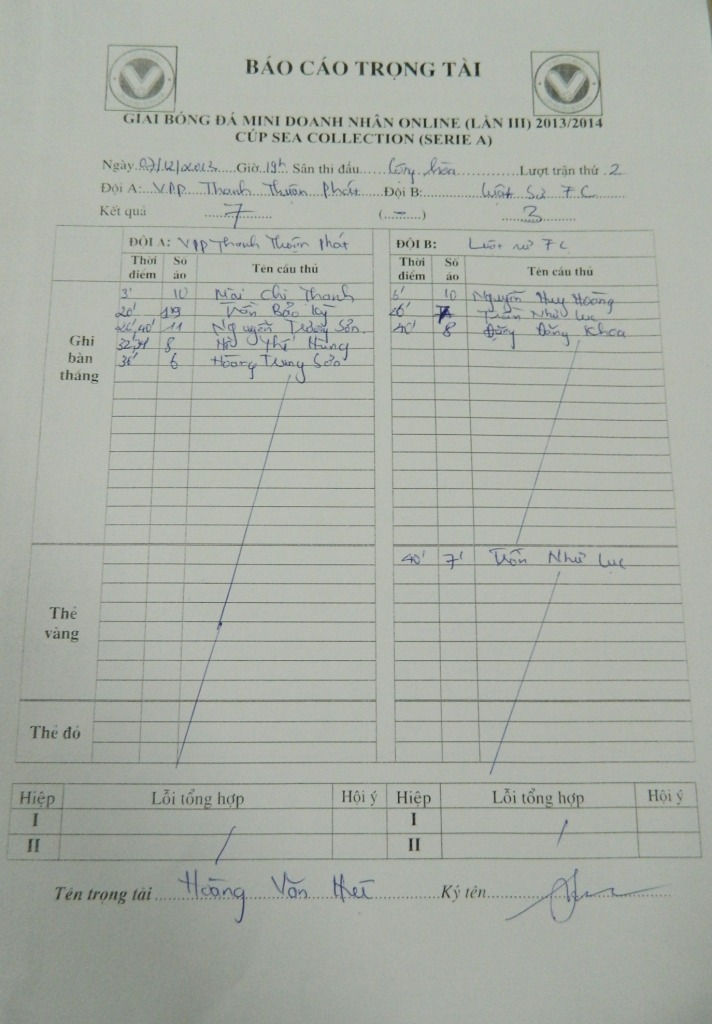 BÁO CÁO TRỌNG TÀI
GIẢI BÓNG ĐÁ MINI DOANH NHÂN ONLINE (LẦN III) 2013/2014
CÚP SEA COLLECTION (SERIE A)
Ngày 07/12/2013 Giờ 19h Sân thi đấu Cộng hòa Lượt trận thứ 2
Đội A: VPP Thanh Thuận Phát Đội B: Luật Sư 7C
Kết quả 7 (...–...) 3
ĐỘI A: VPP Thanh Thuận Phát ĐỘI B: Luật sư 7C
Thời điểm Số áo Tên cầu thủ Thời điểm Số áo Tên cầu thủ
Ghi bàn thắng
3' 10 Mai Chí Thanh 6' 10 Nguyễn Huy Hoàng
20' 19 Trần Bảo Kỳ 7 Trần Như Lục
11 Nguyễn Trường Sơn 40' 8 Đặng Đăng Khoa
8 Thế Hùng
36' 6 Hoàng Trung Sơn
Thẻ vàng
40' 7' Trần Như Lục
Thẻ đỏ
Hiệp Lỗi tổng hợp Hội ý Hiệp Lỗi tổng hợp Hội ý
I I
II II
Tên trọng tài Hoàng Văn Ký tên